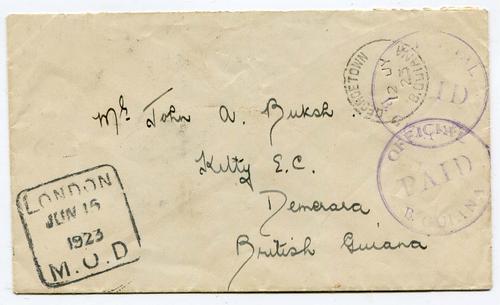 Mr John A. Buksh
Kitty E.C.
Demerara
British Guiana
LONDON
JUN 16
1923
M.O.D
GEORGETOWN
12 JY
23
B.GUIANA
OFFICIAL
PAID
B. GUIANA